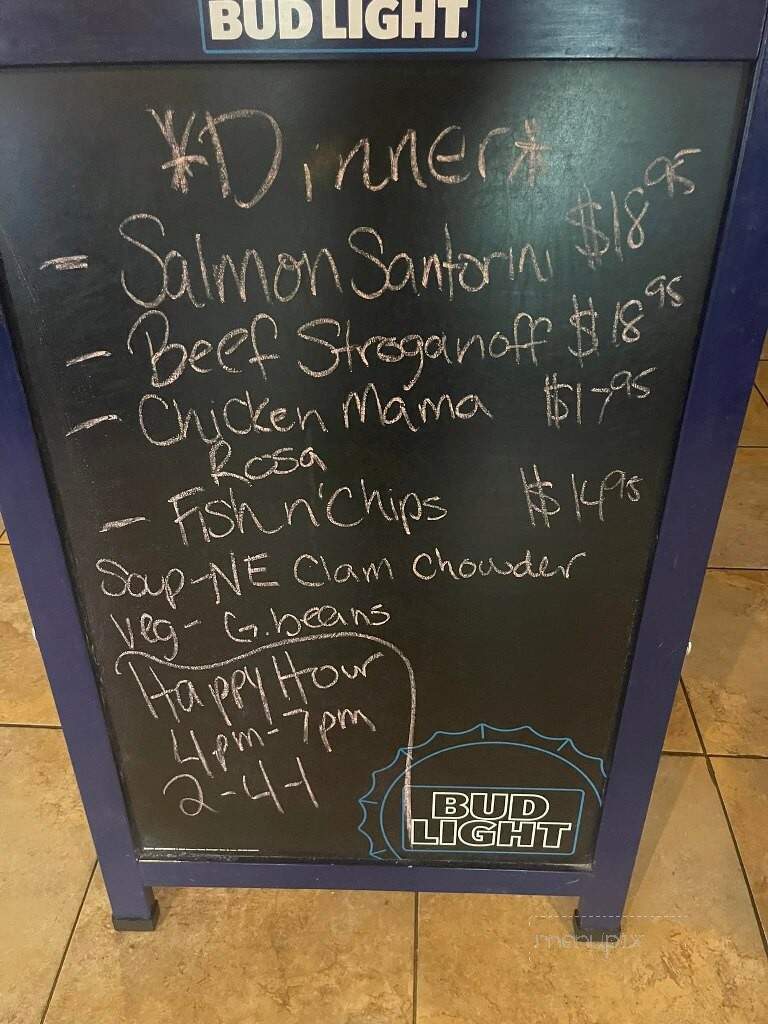 BUD LIGHT
*Dinner*
- Salmon Santorini $18.95
- Beef Stroganoff $18.95
- Chicken Mama $17.95
Rosa
- Fish n' Chips $14.95
Soup - NE Clam Chowder
Veg - G. beans
Happy Hour
4pm-7pm
2-4-1
BUD
LIGHT
menupix